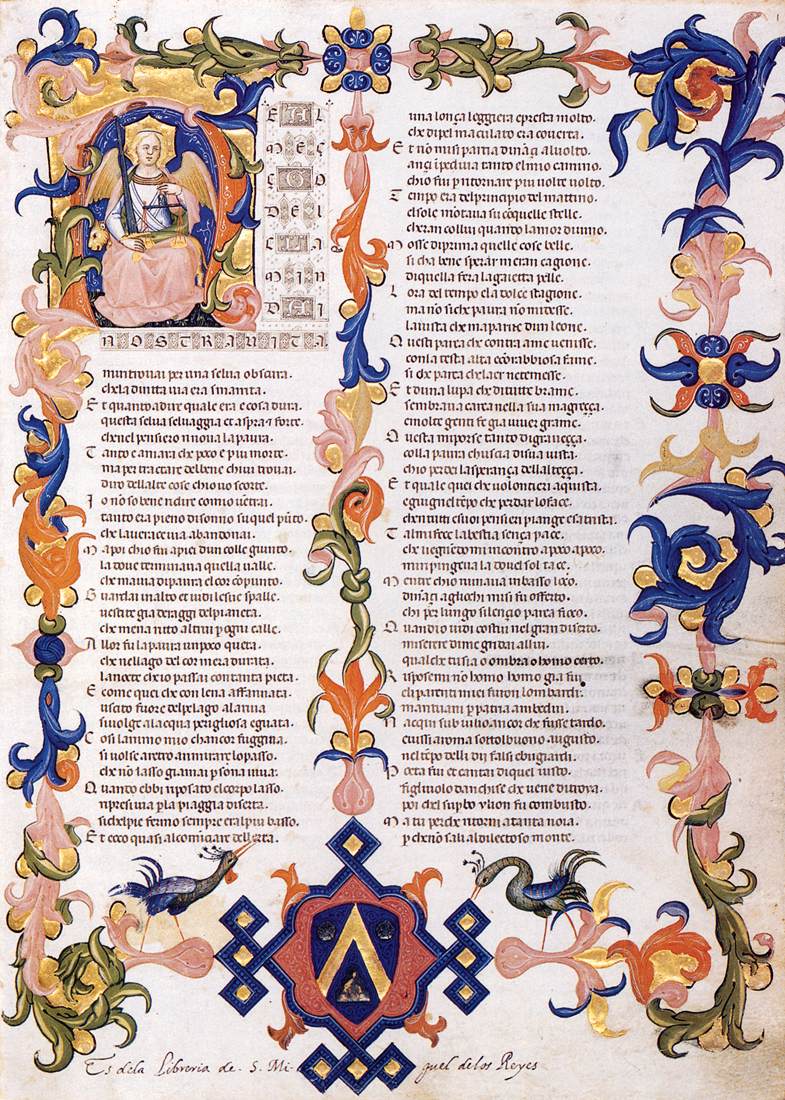 EL
MEÇ
ÇO
DEL
CA
MIN
DI
NOSTRA VITA
mi ritrouai per una selua obscura.
che la diritta uia era smarrita.
Et quanto a dire quale era e cosa dura.
questa selua seluaggia et aspra et forte.
che nel pensiero rinoua la paura.
Tanto e amara che poco e piu morte.
ma per tractare del bene chi ui trouai.
diro dellalte cose chio uo scorte.
Io nõ so bene ridire comio uẽtrai.
tanto era pieno di sonno su quel pũto.
che la uerace uia abandonai.
Ma poi chio fui apiei dun colle giunto.
la doue terminaua quella ualle.
che mauea di paura el cor cõpunto.
Guardai in alto et uidi le sue spalle.
uestite gia de raggi del pianeta.
che mena ritto altrui p ogni calle.
Allor fu la paura un poco queta.
che nellago del cor mera durata.
la nocte chio passai con tanta pieta.
E come quei che con lena affannata.
uscito fuore del pelago alla riua
si uolge alacqua perigliosa e guata.
Cosi lanimo mio chancor fuggiua.
si uolse aretro a mirare lo passo.
che nõ lasso giamai psona uiua.
Quanto ebbi riposato el corpo lasso.
ripresi uia p la piaggia diserta.
si chel pie fermo sempre era l piu basso.
Et ecco quasi al comĩciare dellerta.
una lonça leggiera e presta molto.
che di pel maculato era couerta.
Et nõ mi si partia dinãçi al uolto.
ançi ĩpediua tanto el mio camino.
chio fui p ritornare piu uolte uolto.
Tempo era del principio del mattino.
el sole mõtaua su cõ quelle stelle.
cheran con lui quando lamor diuino.
Mosse di prima quelle cose belle.
si cha bene sperar mera ñ cagione.
di quella fera la gaietta pelle.
Lora del tempo e la dolce stagione.
ma nõ si che paura nõ mi desse.
la uista che mi parue dun leone.
Questi parea che contra me uenisse.
con la testa alta e cõ rabbiosa fame.
si che parea che laer ne temesse.
Et duna lupa che di tutte brame.
sembraua carca nella sua magreçça.
e molte genti fe gia uiuer grame.
Questa mi porse tanto di graueçça.
colla paura chuscia di sua uista.
chio perdei la sperança dellalteçça.
Et quale quei che uolontieri aq̃uista.
e giugnel tẽpo che perder lo face.
che n tutti e suoi pensieri piange e satrista.
Tal mi fece la bestia sença pace.
che uegnẽdomi incontro a poco a poco.
mi ripingeua la doue l sol tace.
Mentre chio ruuinaua in basso loco.
dinãçi agliochi mi si fu offerto.
chi per lungo silençio parea fioco.
Quando uidi costui nel gran diserto.
miserere di me gridai allui.
qual che tu sia o ombra o homo certo.
Risposemi nõ homo homo gia fui.
e li parenti miei furon lombardi.
mantuani p patria ambedui.
Nacqui sub iulio ancor che fusse tardo.
e uissi a roma sottol buono augusto.
nel tẽpo delli dii falsi e bugiardi.
Poeta fui et cantai di quel iusto.
figliuolo danchise che uene di troya.
poi chel supbo ylion fu combusto.
Ma tu perche ritorni a tanta noia.
p che nõ sali al dilectoso monte.
Es dela Libreria de S. Mi- guel delos Reyes